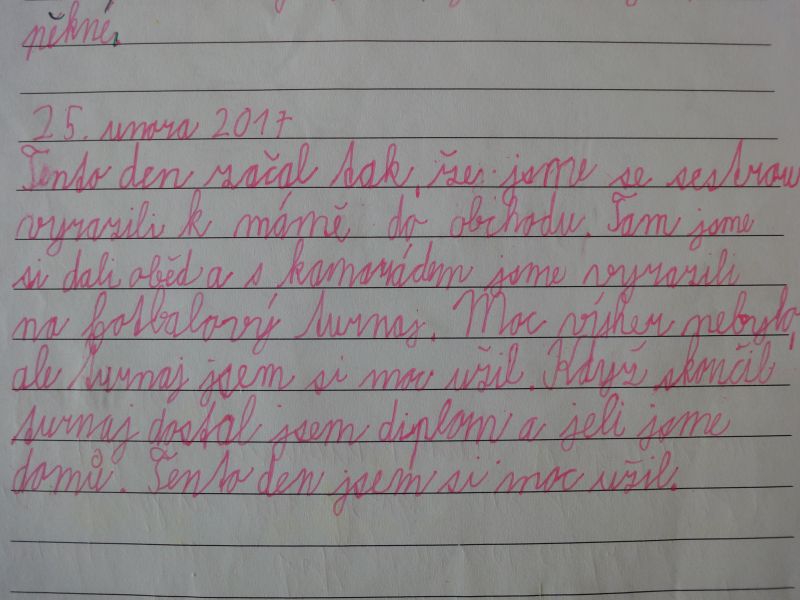 pěkné.
25. února 2017
Tento den začal tak, že jsme se sestrou
vyrazili k mámě do obchodu. Tam jsme
si dali oběd a s kamarádem jsme vyrazili
na fotbalový turnaj. Moc výher nebylo,
ale turnaj jsem si moc užil. Když skončil
turnaj dostal jsem diplom a jeli jsme
domů. Tento den jsem si moc užil.